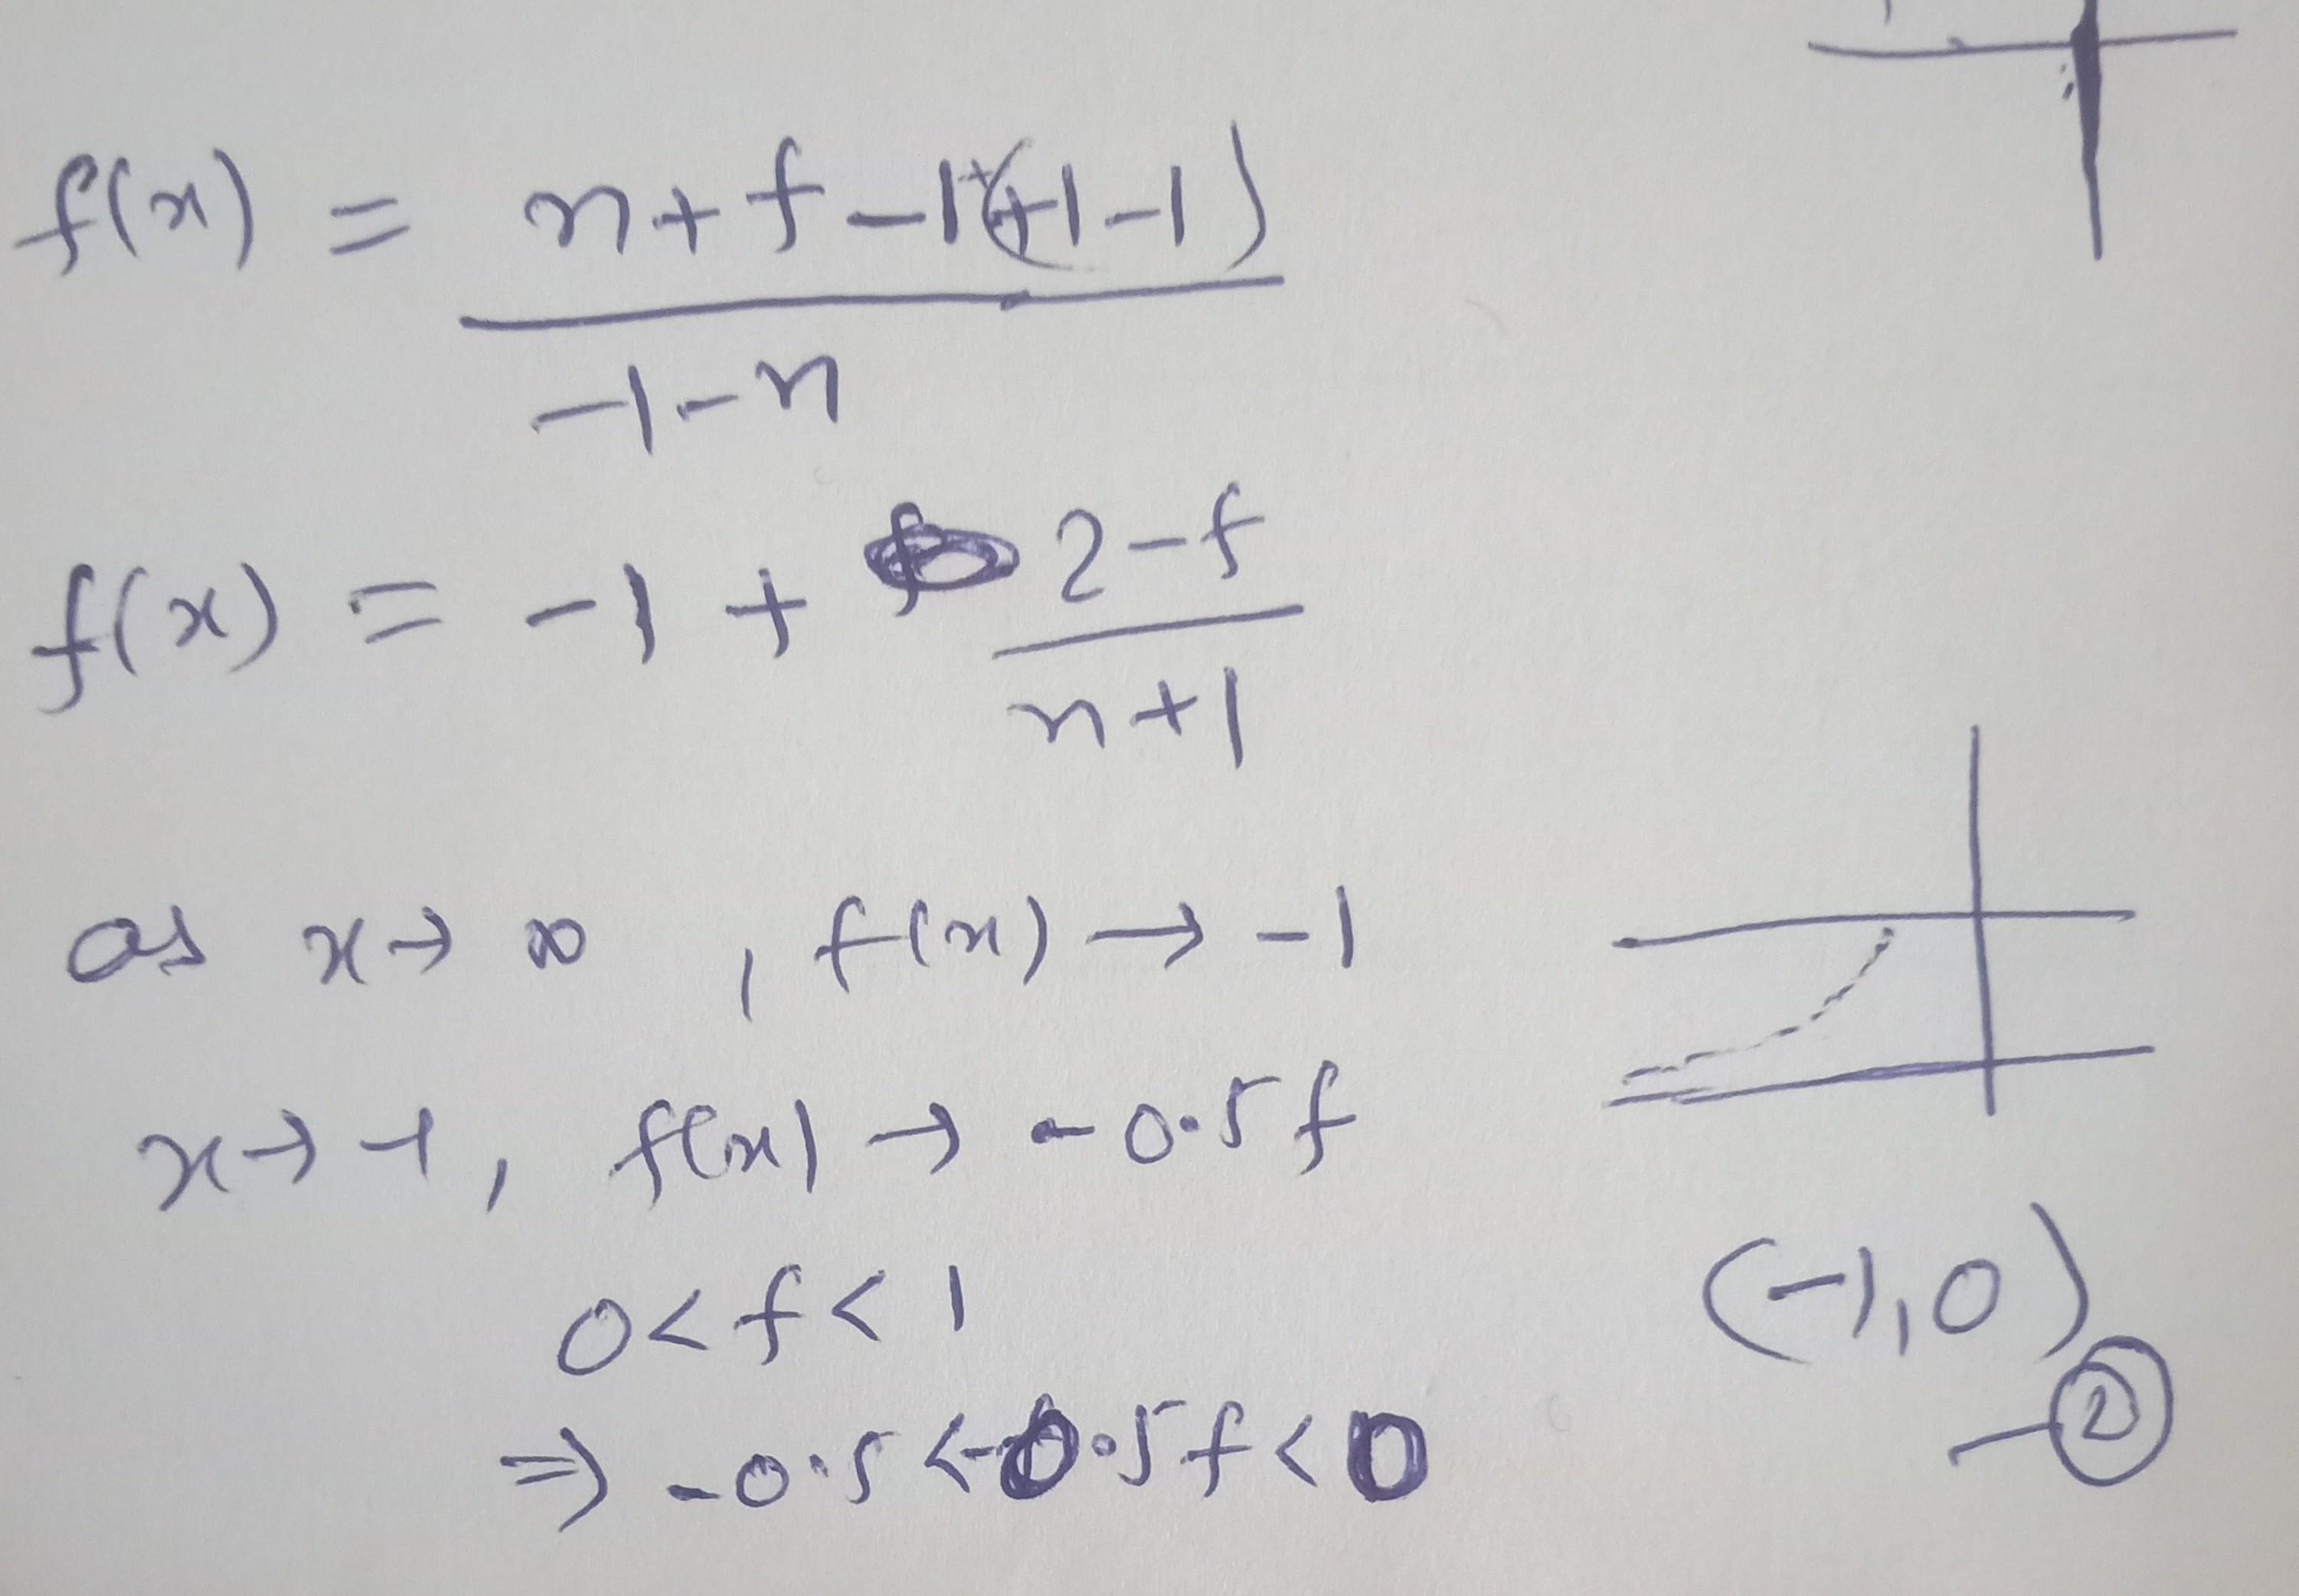 f(x) = n + f - 1 + (+1 - 1)
-1 - n
f(x) = -1 + 2 - f
n + 1
as x → ∞ , f(x) → -1
x → -1 , f(x) → -0.5f
0 < f < 1
⇒ -0.5 < -0.5f < 0
(-1, 0)
- 2